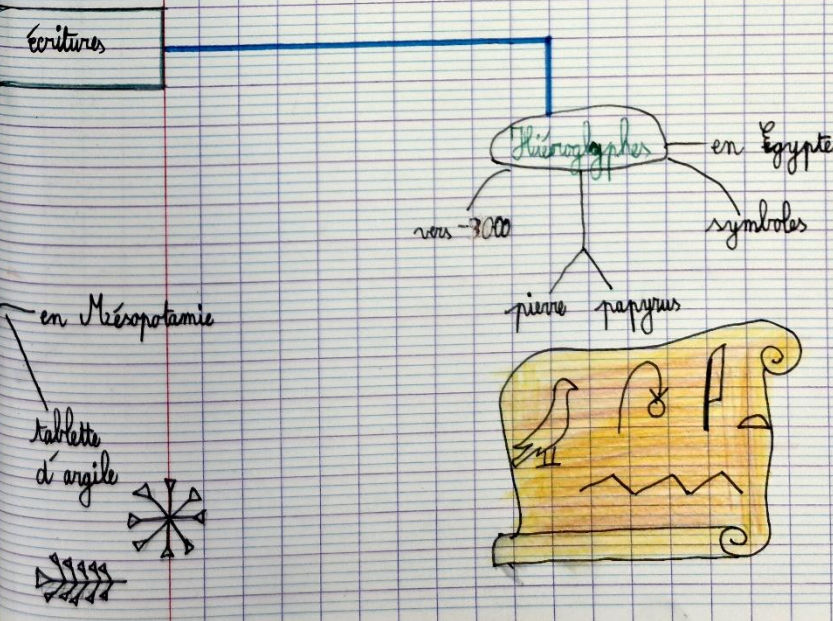 écritures
Hiéroglyphes
en Égypte
vers -3000
symboles
pierre papyrus
en Mésopotamie
tablette
d'argile